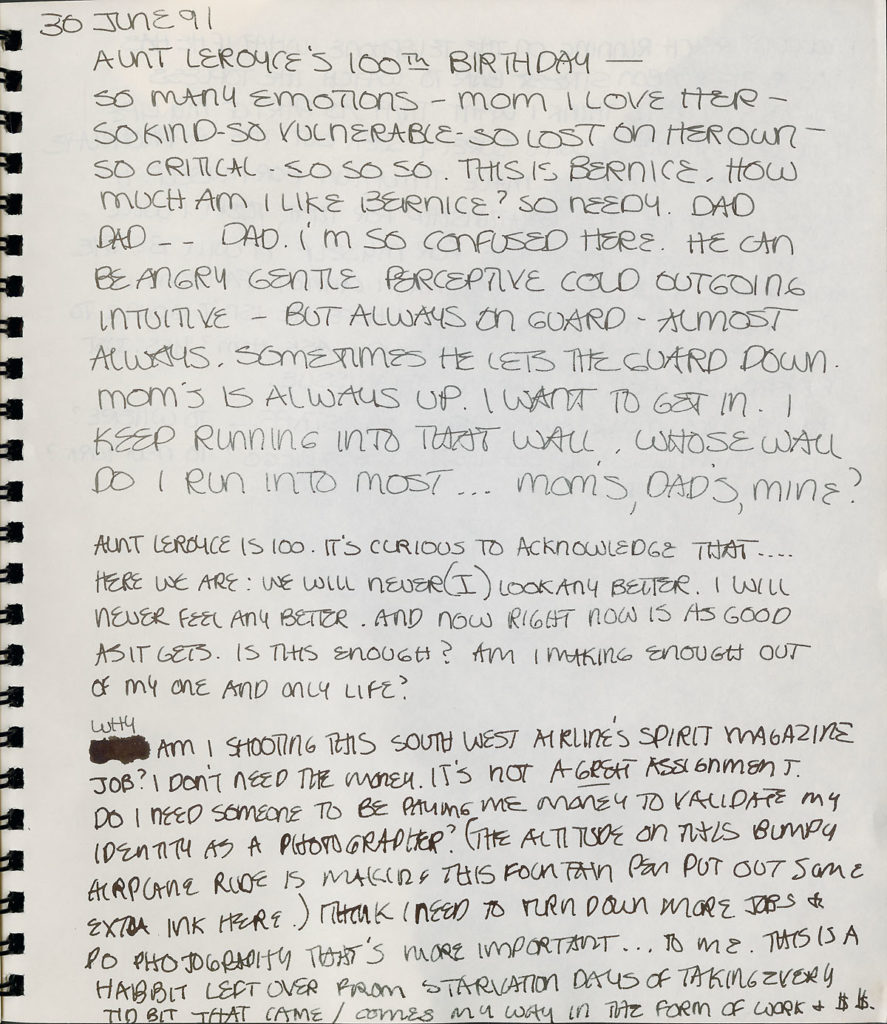 30 JUNE 91
AUNT LEROYCE'S 100TH BIRTHDAY —
SO MANY EMOTIONS - MOM I LOVE HER -
SO KIND-SO VULNERABLE-SO LOST ON HER OWN -
SO CRITICAL - SO SO SO. THIS IS BERNICE. HOW
MUCH AM I LIKE BERNICE? SO NEEDY. DAD
DAD -- DAD. I'M SO CONFUSED HERE. HE CAN
BE ANGRY GENTLE PERCEPTIVE COLD OUTGOING
INTUITIVE - BUT ALWAYS ON GUARD - ALMOST
ALWAYS. SOMETIMES HE LETS THE GUARD DOWN.
MOM'S IS ALWAYS UP. I WANT TO GET IN. I
KEEP RUNNING INTO THAT WALL. WHOSE WALL
DO I RUN INTO MOST... MOM'S, DAD'S, MINE?
AUNT LEROYCE IS 100. IT'S CURIOUS TO ACKNOWLEDGE THAT....
HERE WE ARE: WE WILL NEVER (I) LOOK ANY BETTER. I WILL
NEVER FEEL ANY BETTER. AND NOW RIGHT NOW IS AS GOOD
AS IT GETS. IS THIS ENOUGH? AM I MAKING ENOUGH OUT
OF MY ONE AND ONLY LIFE?
WHY
AM I SHOOTING THIS SOUTH WEST AIRLINE'S SPIRIT MAGAZINE
JOB? I DON'T NEED THE MONEY. IT'S NOT A GREAT ASSIGNMENT.
DO I NEED SOMEONE TO BE PAYING ME MONEY TO VALIDATE MY
IDENTITY AS A PHOTOGRAPHER? (THE ALTITUDE ON THIS BUMPY
AIRPLANE RIDE IS MAKING THIS FOUNTAIN PEN PUT OUT SOME
EXTRA INK HERE.) I THINK I NEED TO TURN DOWN MORE JOBS &
DO PHOTOGRAPHY THAT'S MORE IMPORTANT... TO ME. THIS IS A
HABBIT LEFT OVER FROM STARVATION DAYS OF TAKING EVERY
TID BIT THAT CAME / COMES MY WAY IN THE FORM OF WORK & $ $.